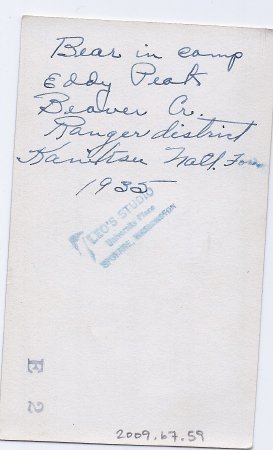 Bear in camp
Eddy Peak
Beaver Cr.
Ranger district
Kaniksu Natl. For
1935
LEO'S STUDIO
University Place
SPOKANE, WASHINGTON
E 2
2009.67.59